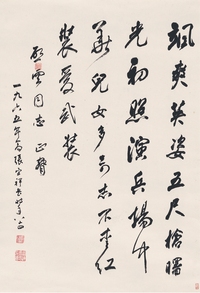 飒爽英姿五尺枪曙
光初照演兵场中
华儿女多奇志不爱红
装爱武装
雪同志正腕
一九六五年冬张宗祥书时年八十四